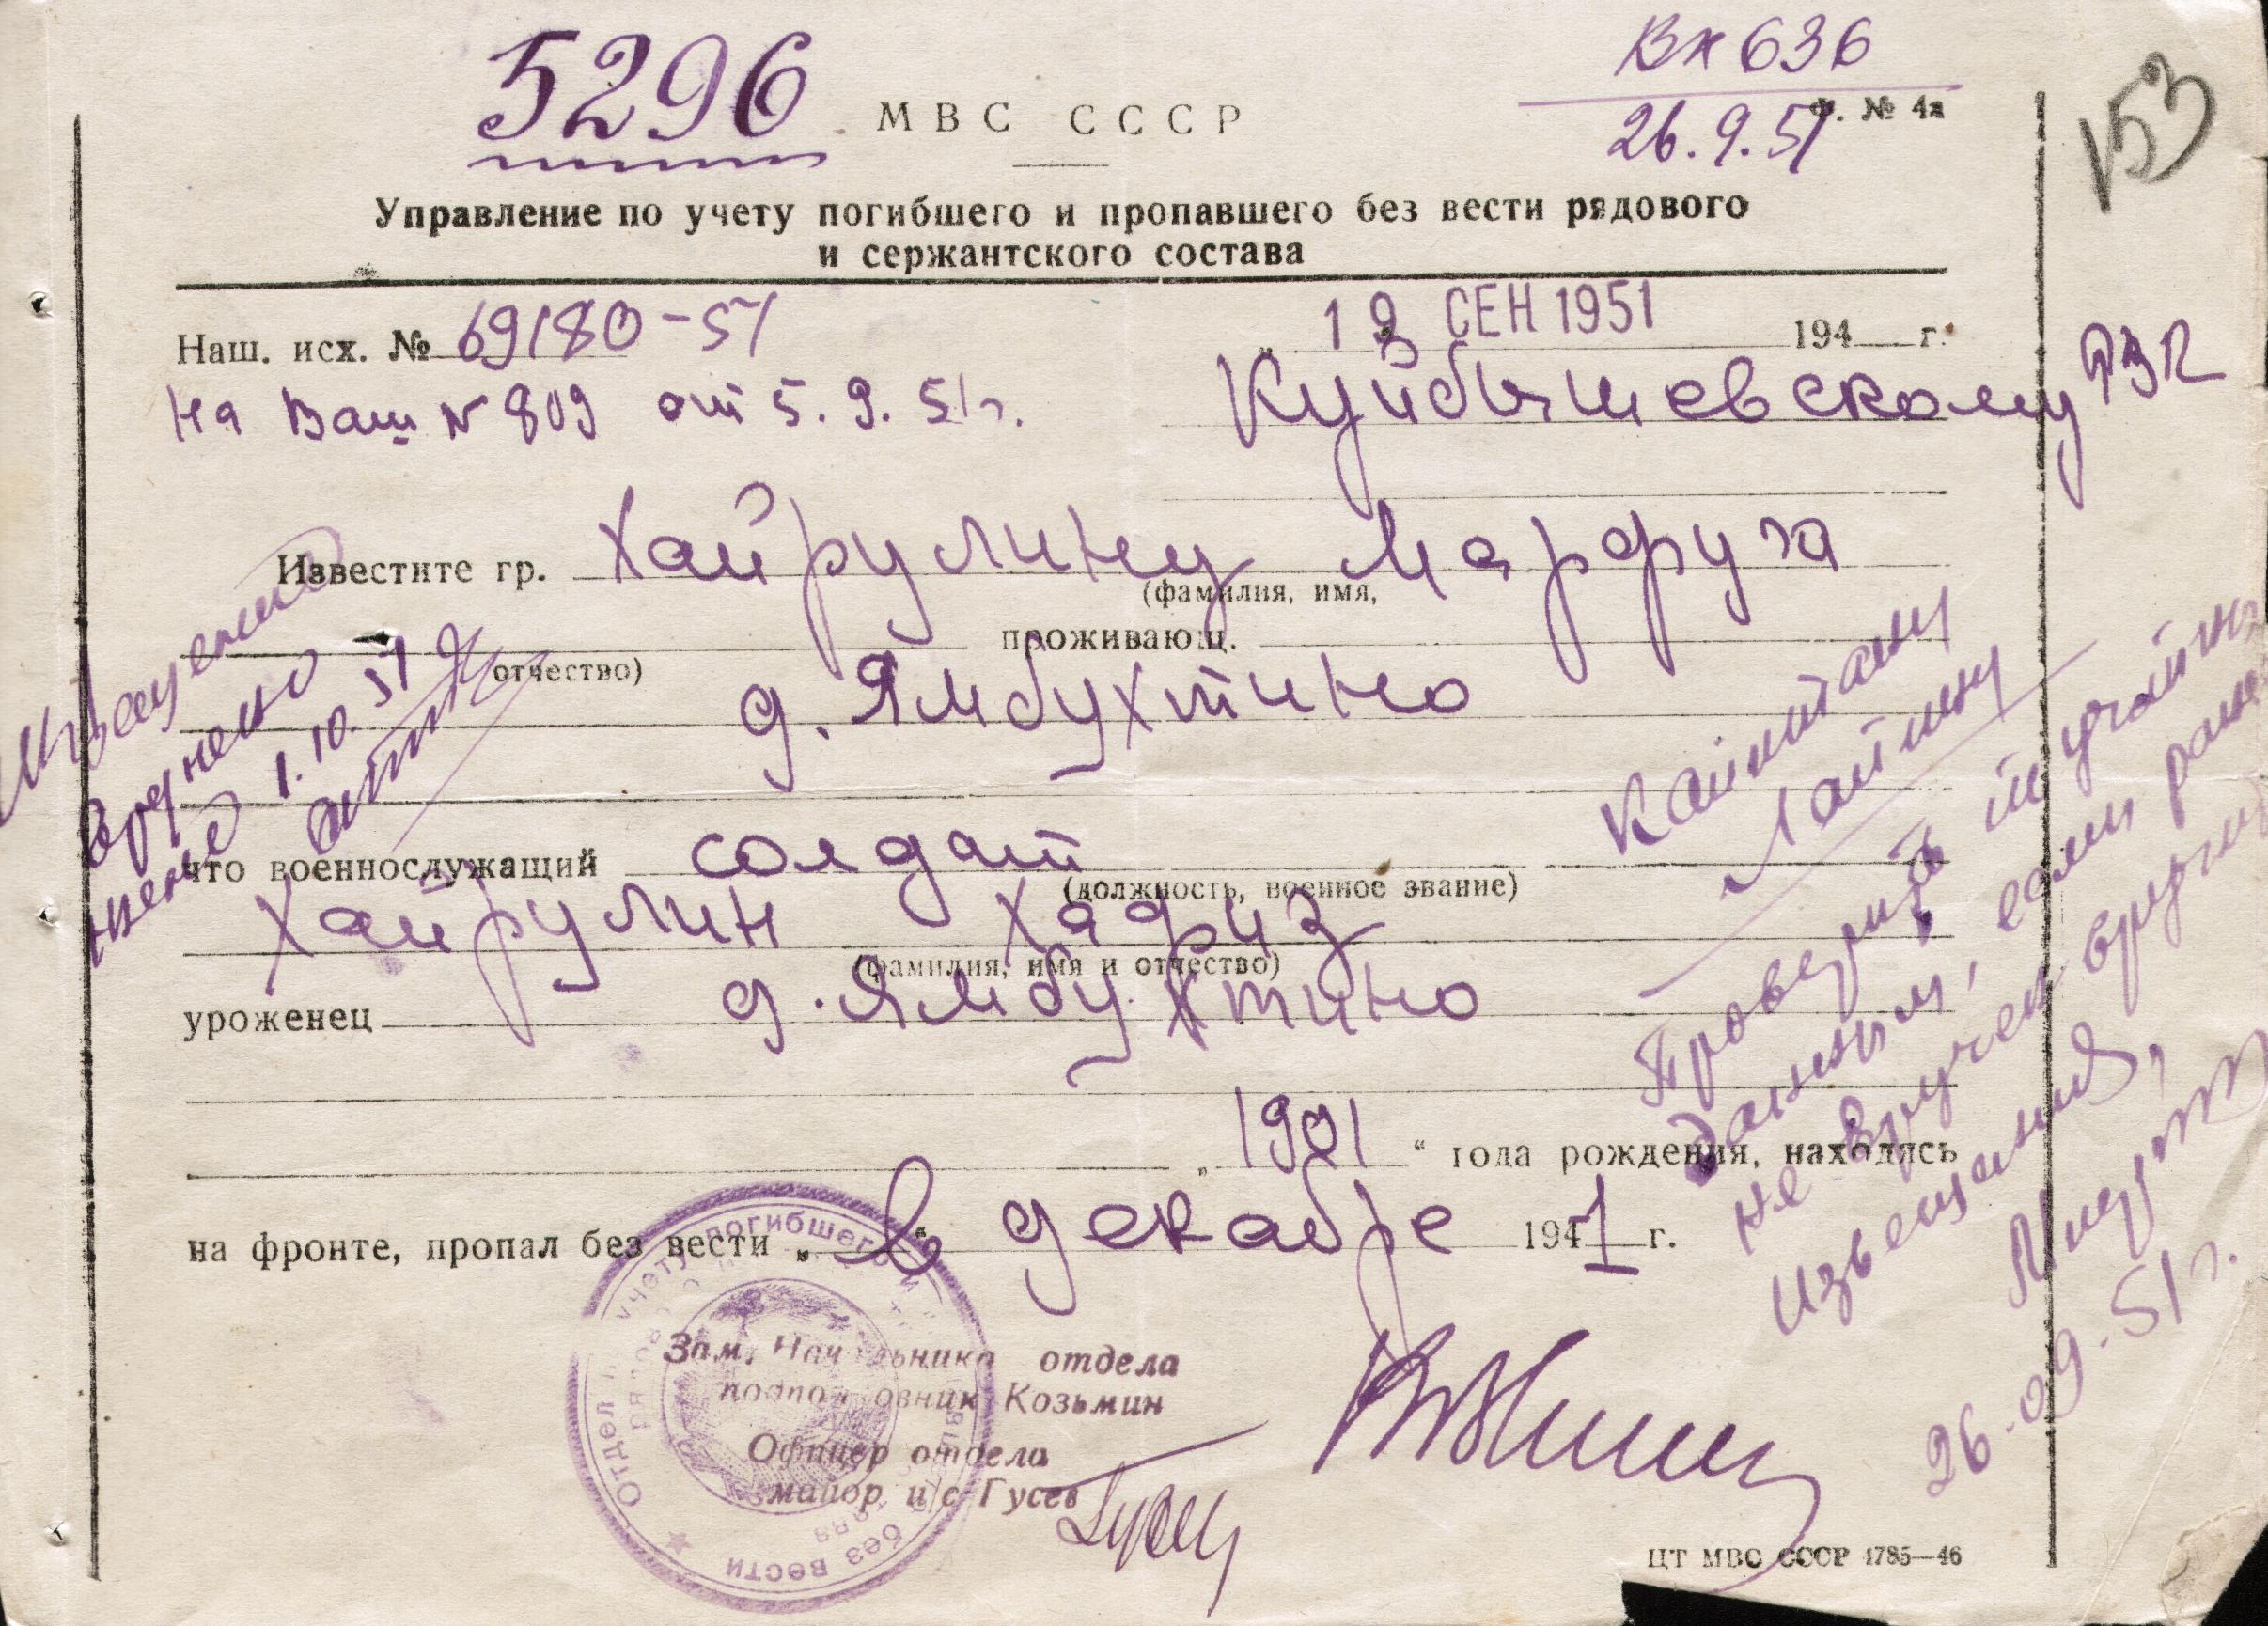 5296
Вх 636
26.9.51
153
МВС СССР
Ф. № 4а
Управление по учету погибшего и пропавшего без вести рядового
и сержантского состава
Наш. исх. № 69180-51
19 СЕН 1951 194 г.
На Ваш № 809 от 5.9.51г.
Куйбышевскому РВК
Известите гр. Хайрулину Марфуга
(фамилия, имя,
отчество) проживающ.
д. Ямбухтино
что военнослужащий солдат
(должность, военное звание)
Хайрулин Хафиз
(фамилия, имя и отчество)
уроженец д. Ямбухтино
„1901“ года рождения, находясь
на фронте, пропал без вести „в“ декабре 1941 г.
Зам. Начальника отдела
подполковник Козьмин
Офицер отдела
майор и/с Гусев
ЦТ МВС СССР 1785—46
Извещение
вручено
1.10.51
Капитану
Лапшину
Проверить
данным, если ранее
не вручен вручить
извещение,
26.09.51г.
Отдел по учету погибшего и
без вести